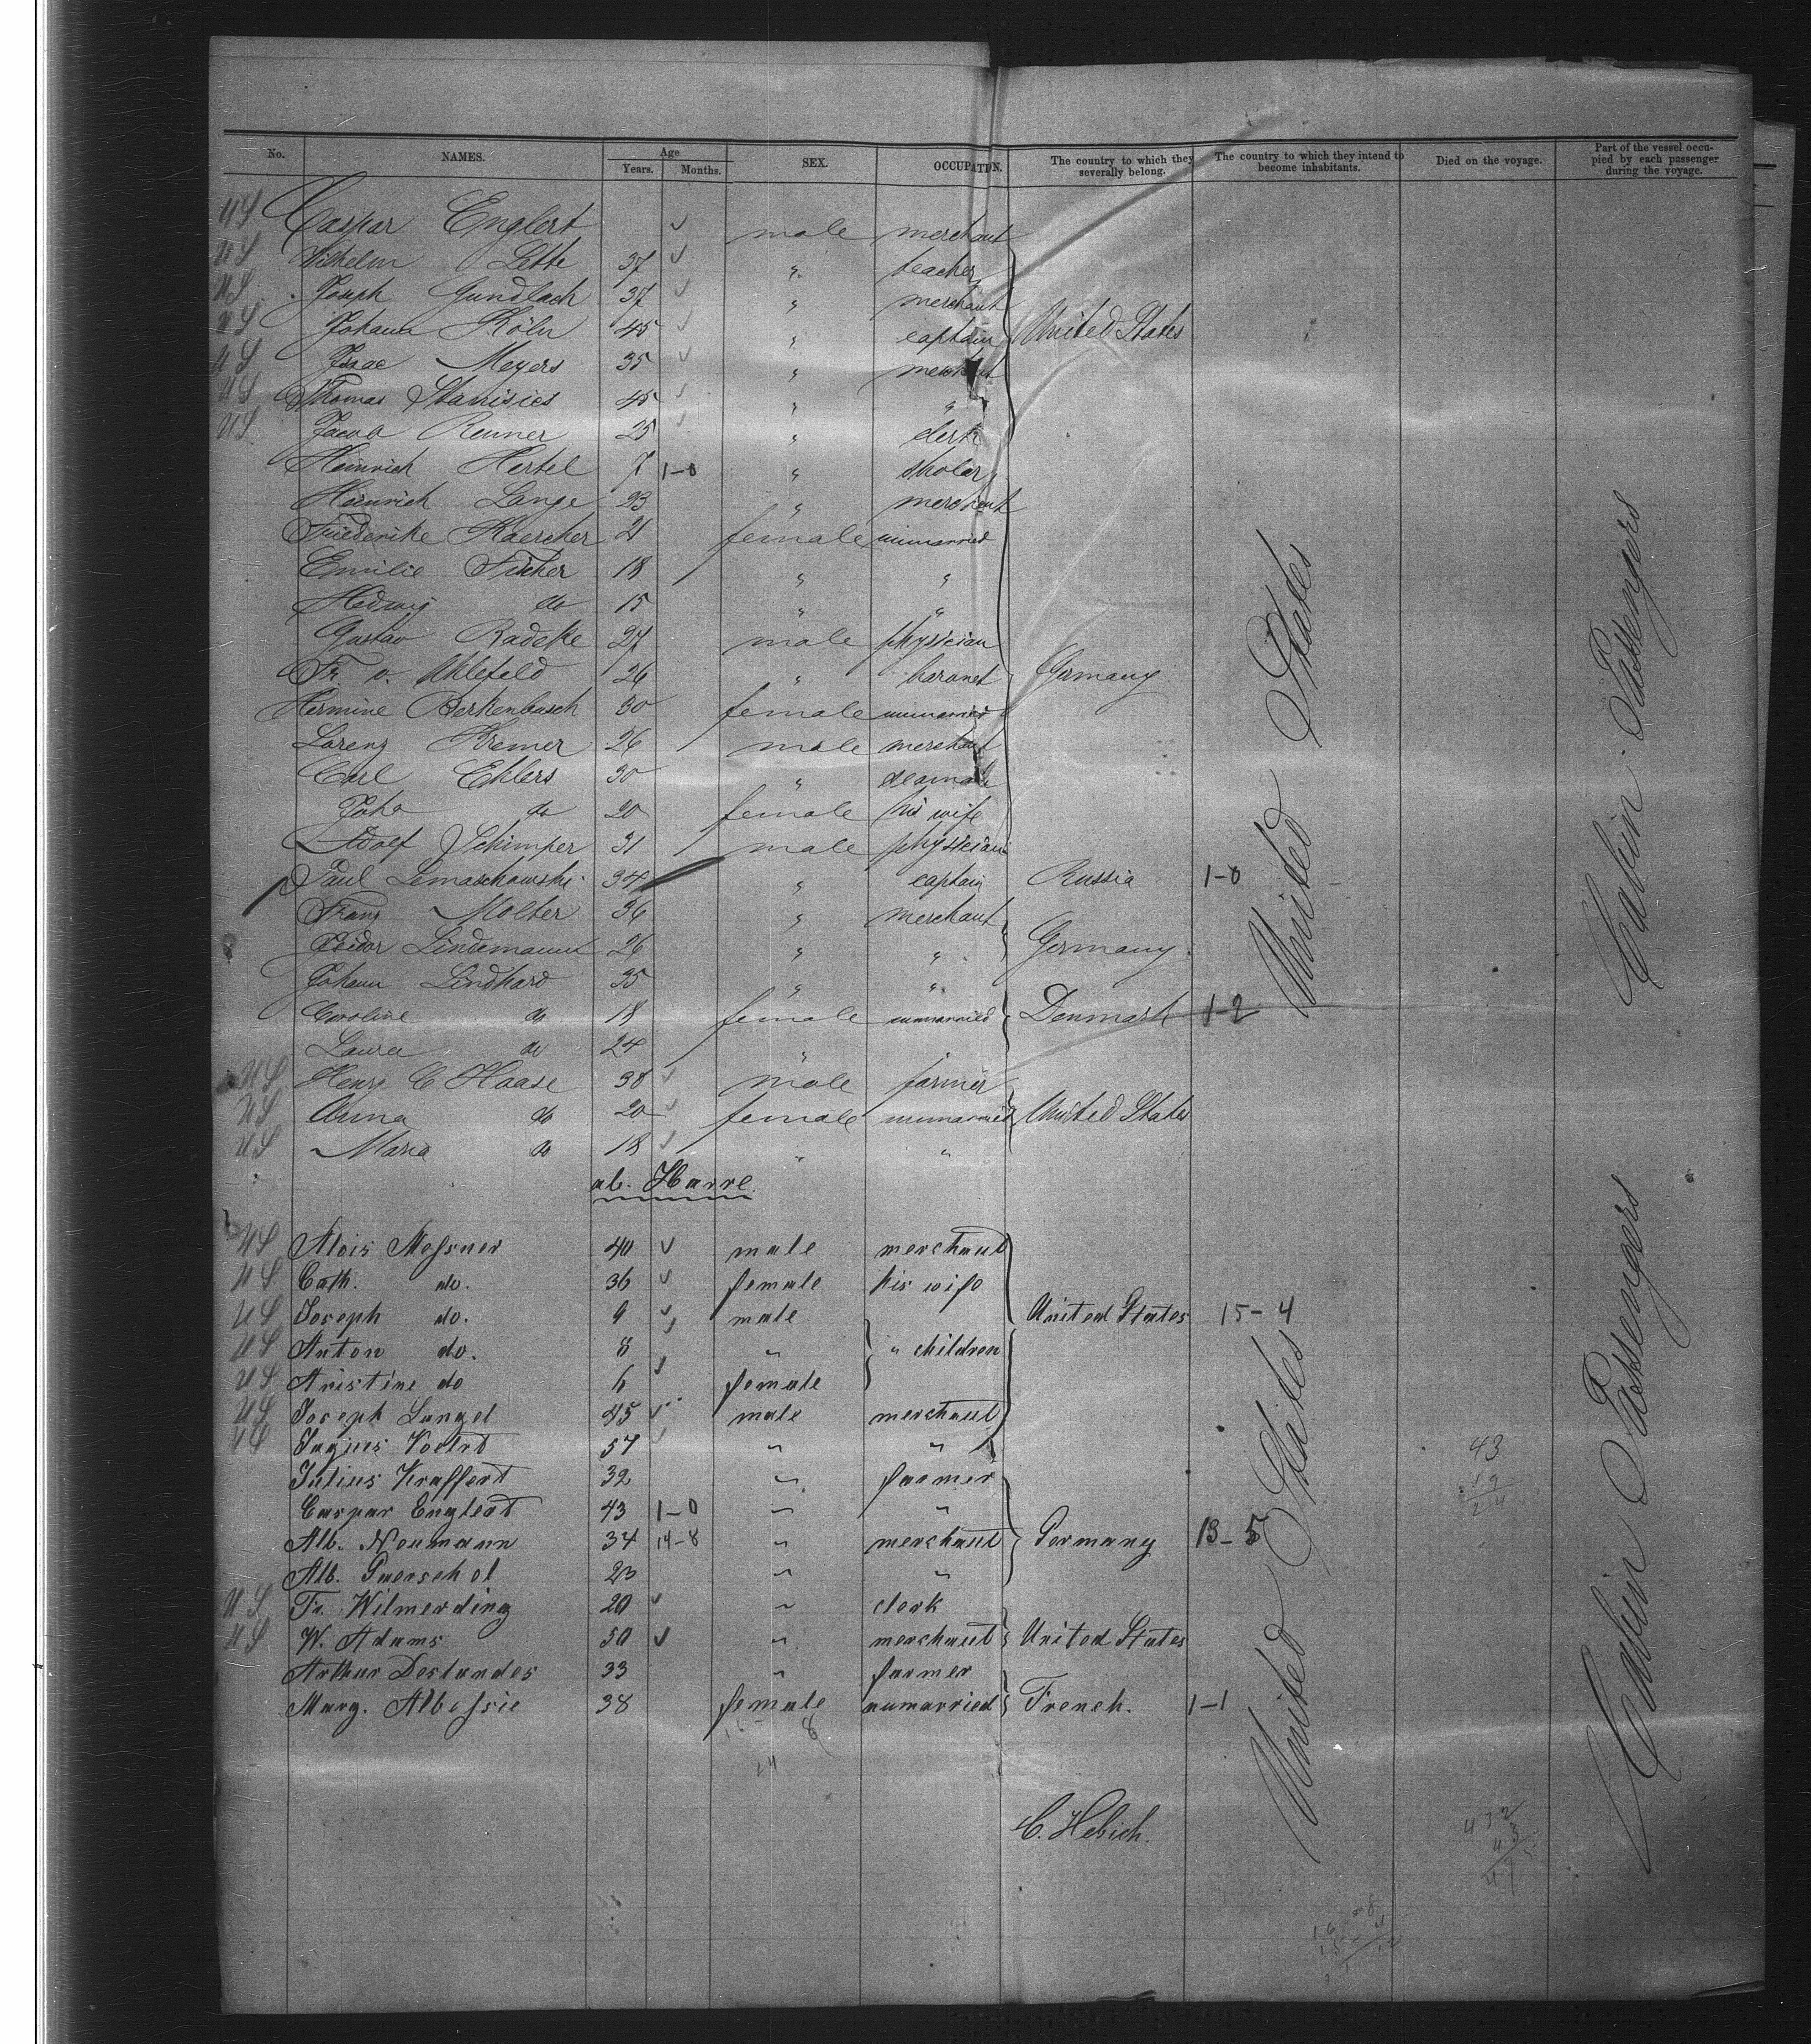 No. NAMES. Age Years. Months. SEX. OCCUPATION. The country to which they severally belong. The country to which they intend to become inhabitants. Died on the voyage. Part of the vessel occupied by each passenger during the voyage.
US Caspar Englert male merchant
US Wilhelm Lette 37 " teacher
US Joseph Gundlach 37 " merchant
US Johann Köln 45 " captain United States
US Isaac Meyers 35 " merchant
US Thomas Stanisics 45 " "
US Jacob Renner 25 " clerk
Heinrich Hertel 7 1-0 " skolar
Heinrich Lange 23 " merchant
Friederike Kaercher 21 female unmarried
Emilie Fischer 18 " "
Hedwig do 15 " "
Gustav Radeke 27 male physician
Fr. v. Uhlefeld 26 " baronet Germany
Hermine Berkenbusch 30 female unmarried
Lorenz Kremer 26 male merchant
Carl Ehlers 30 "
do 20 female his wife
Adolf Schimper 31 male physician
Paul Lemaschowski 34 " captain Russia 1-0
Franz Molter 36 " merchant
Isidor Lindemann 26 " " Germany
Johann Lindhard 35 " "
Caroline do 18 female unmarried Denmark 1-2
Laura do 24 "
US Henry C Haase 38 male farmer
US Anna do 20 female unmarried United States
US Maria do 18 " "
United States
Cabin Passengers
ab. Havre
US Alois Messner 40 male merchant
US Cath. do. 36 female his wife
US Joseph do. 9 male United States 15-4
US Anton do. 8 " " children
US Kristine do 6 female
US Joseph Langel 45 male merchant
57 " "
Julius Kraffert 32 " farmer
Caspar Englert 43 1-0 " "
Alb. Neumann 34 14-8 " merchant Germany 13-5
Alb. 23 " "
US Fr. Wilmerding 20 " clerk
US W. Adams 50 " merchant United States
Arthur Deslandes 33 " farmer
Marg. Albessie 38 female unmarried French. 1-1
United States
Cabin Passengers
43
19
24
C. Hebich.
432
43